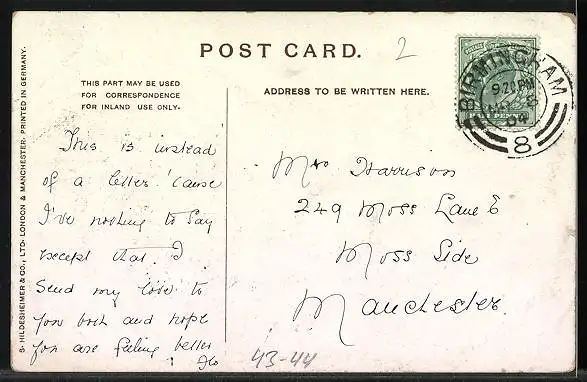 POST CARD.
2
THIS PART MAY BE USED
FOR CORRESPONDENCE
FOR INLAND USE ONLY.
ADDRESS TO BE WRITTEN HERE.
BIRMINGHAM
9.20 PM
04
8
HALFPENNY
S. HILDESHEIMER & CO., LTD. LONDON & MANCHESTER. PRINTED IN GERMANY.
This is instead
of a letter 'cause
I've nothing to say
except that I
Send my love to
you both and hope
you are feeling better
Flo
Mrs Harrison
249 Moss Lane E
Moss Side
Manchester.
43-44